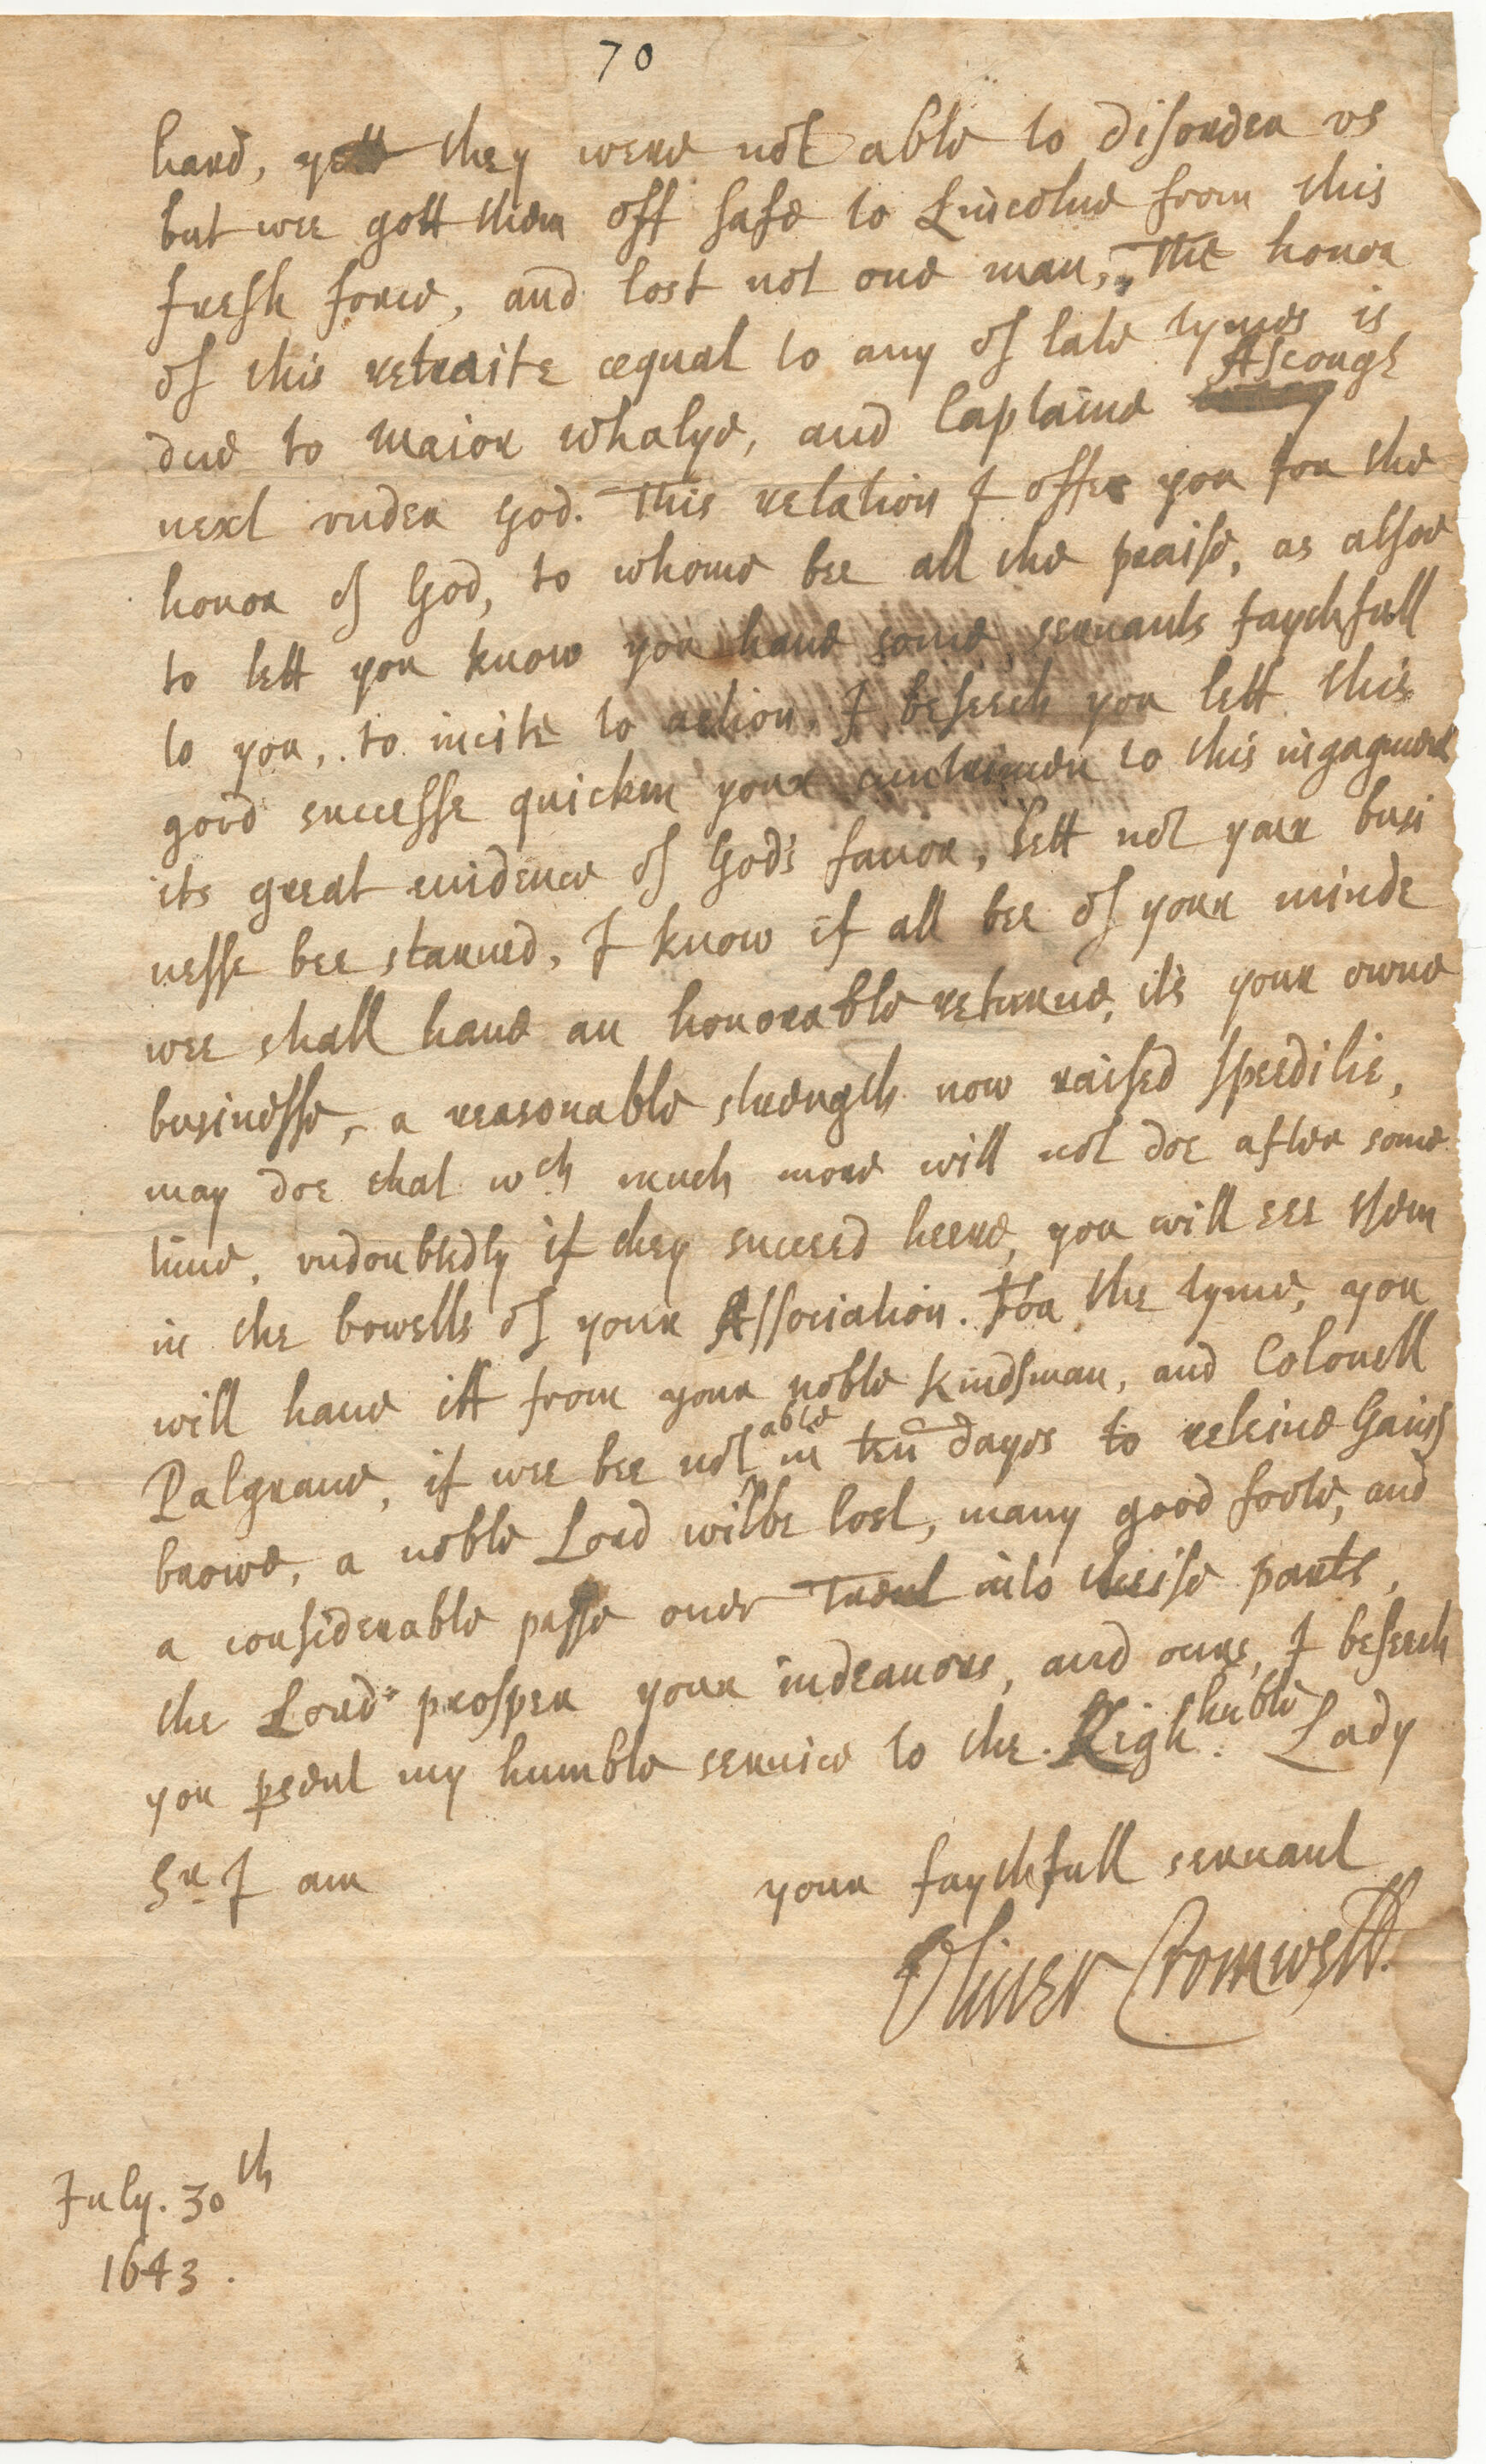 70
hard, yett they were not able to disorder vs
but wee gott them off safe to Lincolne from this
fresh force, and lost not one man, The honor
of this retraite æqual to any of late tymes is
due to Maior Whalye, and Captaine Ascough
next vnder God. This relation I offer you for the
honor of God, to whome bee all the praise, as alsoe
to lett you know you haue some seruants faythfull
to you, to incite to action. I beseech you lett this
good successe quicken your countriemen to this ingagment
its great euidence of God's fauor, Lett not your busi
nesse bee starued, I know if all bee of your minde
wee shall haue an honorable returne, it's your owne
businesse, a reasonable strength now raised speedilie,
may doe that wch much more will not doe after some
time, vndoubtedly if they succeed heere, you will see them
in the bowells of your Association. For the tyme, you
will haue itt from your noble kindsman, and Colonell
Palgraue, if wee bee not able in ten dayes to releiue Gains
browe, a noble Lord wilbe lost, many good foote, and
a considerable passe ouer Trent into theise parts,
the Lord prosper your indeauors, and ours, I beseech
you psent my humble seruice to the Righ: hnble Lady
Sr I am
your faythfull seruant
Oliuer Cromwell.
July. 30th
1643.